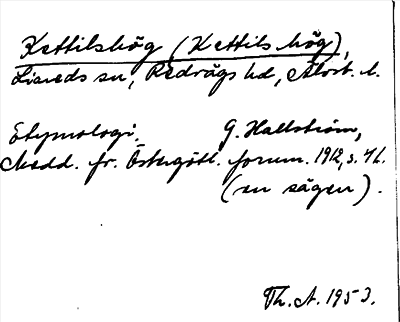 Kettilshög (Kettils hög),
Liareds sn, Redvägs hd, Älvsb. l.
Etymologi. G. Hallström,
Medd. fr. Östergötl. fornm. 1912, s. 46.
(en sägen).
Th. A. 1953.